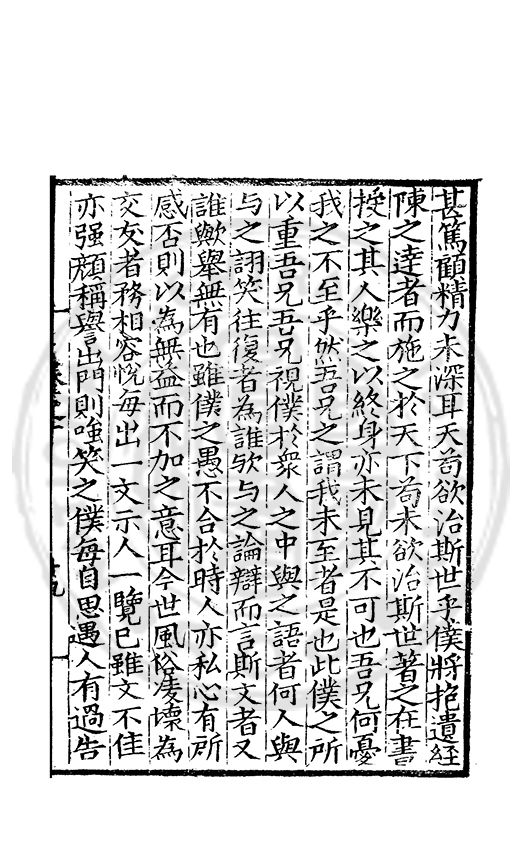 甚篤顧精力未深耳天苟欲治斯世乎僕將抱遺經
陳之達者而施之於天下苟未欲治斯世著之在書
授之其人樂之以終身亦未見其不可也吾兄何憂
我之不至乎然吾兄之謂我未至者是也此僕之所
以重吾兄吾兄視僕於衆人之中與之語者何人與
与之詡笑往復者為誰欤与之論辯而言斯文者又
誰歟舉無有也雖僕之愚不合於時人亦私心有所
感否則以為無益而不加之意耳今世風俗凌壞為
交友者務相容悅每出一文示人一覽已雖文不佳
亦强顔稱譽出門則嗤笑之僕每自思遇人有過告